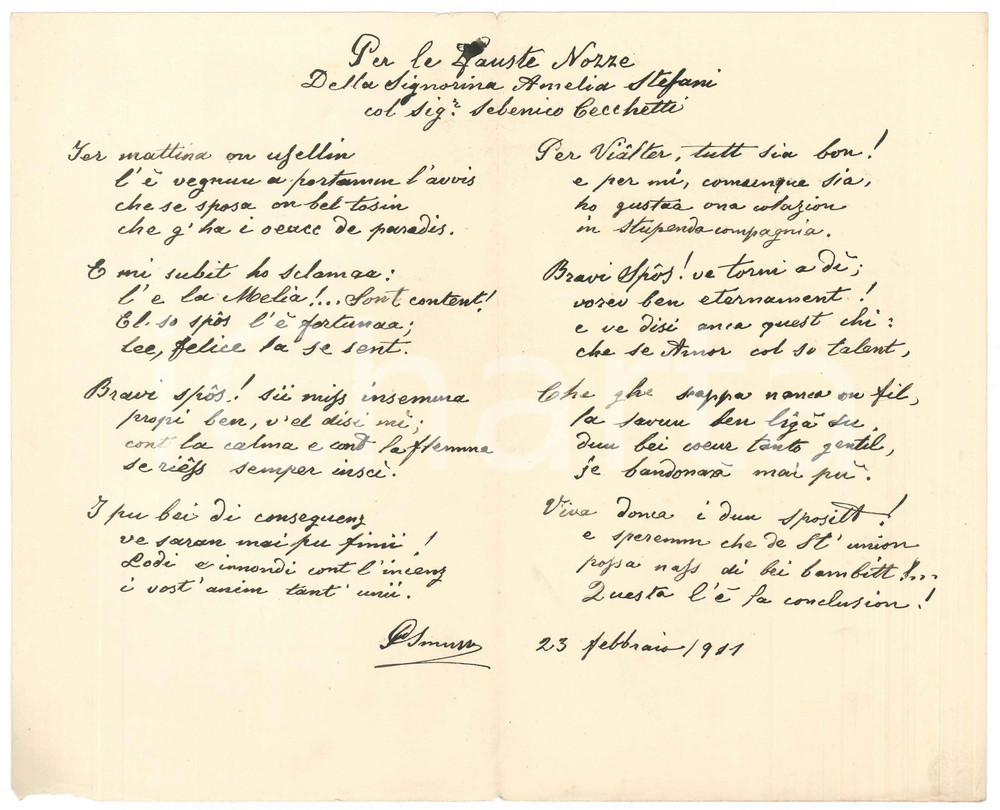 Per le Fauste Nozze
Della Signorina Amelia Stefani
col Sigr. Sebenico Cecchetti
Jer mattina on usellin
l'è vegnuu a portamm l'avvis
che se sposa on bel tosin
che g'ha i oeucc de paradis.
E mi subit ho sclamaa:
l'e la Melia!... Sont content!
El so spôs l'è fortunaa;
lee, felice la se sent.
Bravi spôs! Sii miss insemma
propi ben, v'el disi mì;
cont la calma e cont la flemma
se riêss semper inscì.
I pu bei di conseguenz
ve saran mai pu finii!
Lodi e innondi cont l'incenz
i vost' anim tant' unii.
Per Viâlter, tutt sia bon!
e per mi, comunque sia,
ho gustaa ona colazion
in stupenda compagnia.
Bravi Spôs! ve torni a dì;
vorev ben eternament!
e ve disi anca quest chì:
che se Amor col so talent,
Che ghe scappa nanca on fil,
la savuu ben ligà su
duu bei coeur tanto gentil,
je bandonarà mai pù.
Viva donca i duu spositt!
e speremm che de St' union
possa nass di bei bambitt!...
Questa l'è la conclusion!
23 febbraio 1911